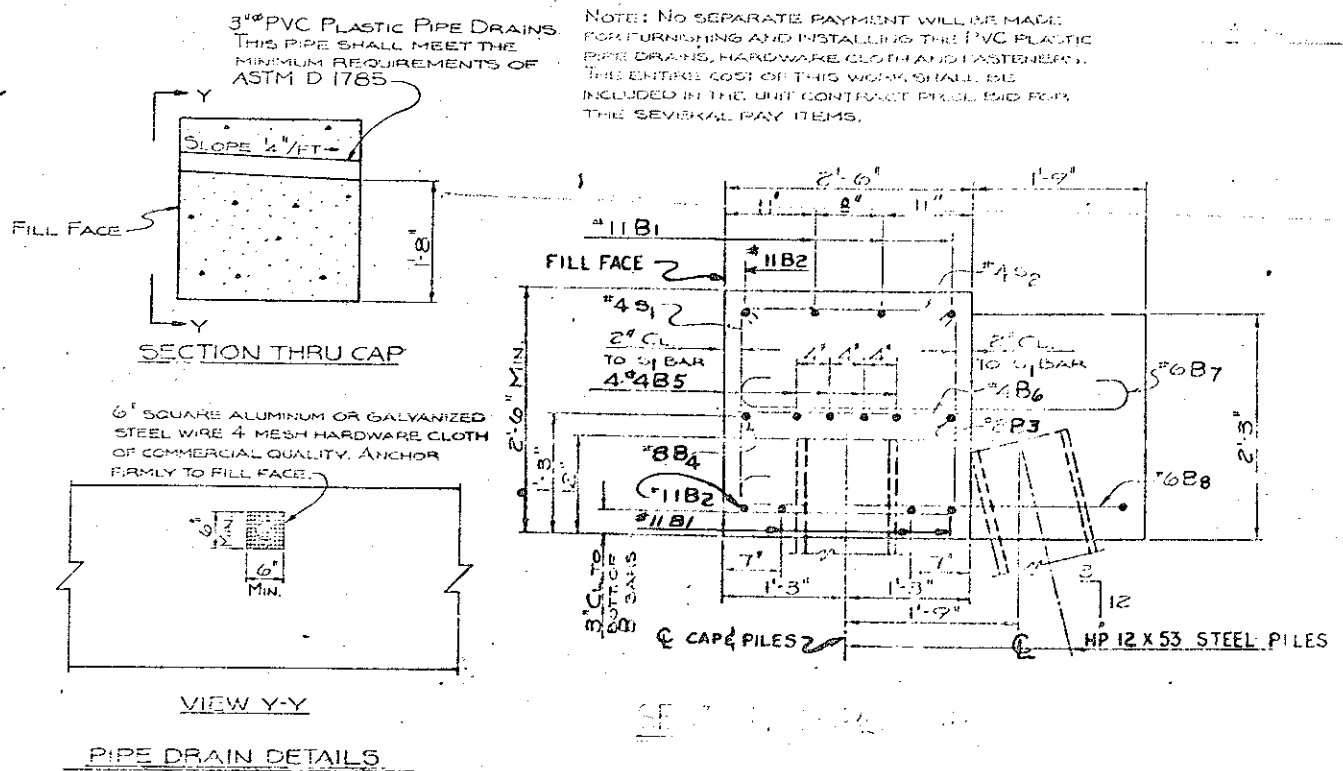 3"ø PVC PLASTIC PIPE DRAINS
THIS PIPE SHALL MEET THE
MINIMUM REQUIREMENTS OF
ASTM D 1785
NOTE: NO SEPARATE PAYMENT WILL BE MADE
FOR FURNISHING AND INSTALLING THE PVC PLASTIC
PIPE DRAINS, HARDWARE CLOTH AND FASTENERS.
THE ENTIRE COST OF THIS WORK SHALL BE
INCLUDED IN THE UNIT CONTRACT PRICE BID FOR
THE SEVERAL PAY ITEMS.
Y
SLOPE 1/4"/FT
FILL FACE
1'-8"
Y
SECTION THRU CAP
6" SQUARE ALUMINUM OR GALVANIZED
STEEL WIRE 4 MESH HARDWARE CLOTH
OF COMMERCIAL QUALITY. ANCHOR
FIRMLY TO FILL FACE.
6"
MIN.
6"
MIN.
VIEW Y-Y
PIPE DRAIN DETAILS
2'-6"
1'-9"
11"
8"
11"
#11B1
#11B2
FILL FACE
#4S2
#4S1
2" CL.
TO S1 BAR
4"
4"
4"
2" CL.
TO S1 BAR
4-#4B5
#6B7
#4B6
#8B3
2'-6" MIN.
1'-3"
12"
#8B4
#11B2
#11B1
2'-3"
#6B8
3" CL. TO
BOTT. OF
B BARS
7"
7"
1'-3"
1'-3"
1'-9"
3
12
℄ CAP & PILES
℄ HP 12 X 53 STEEL PILES